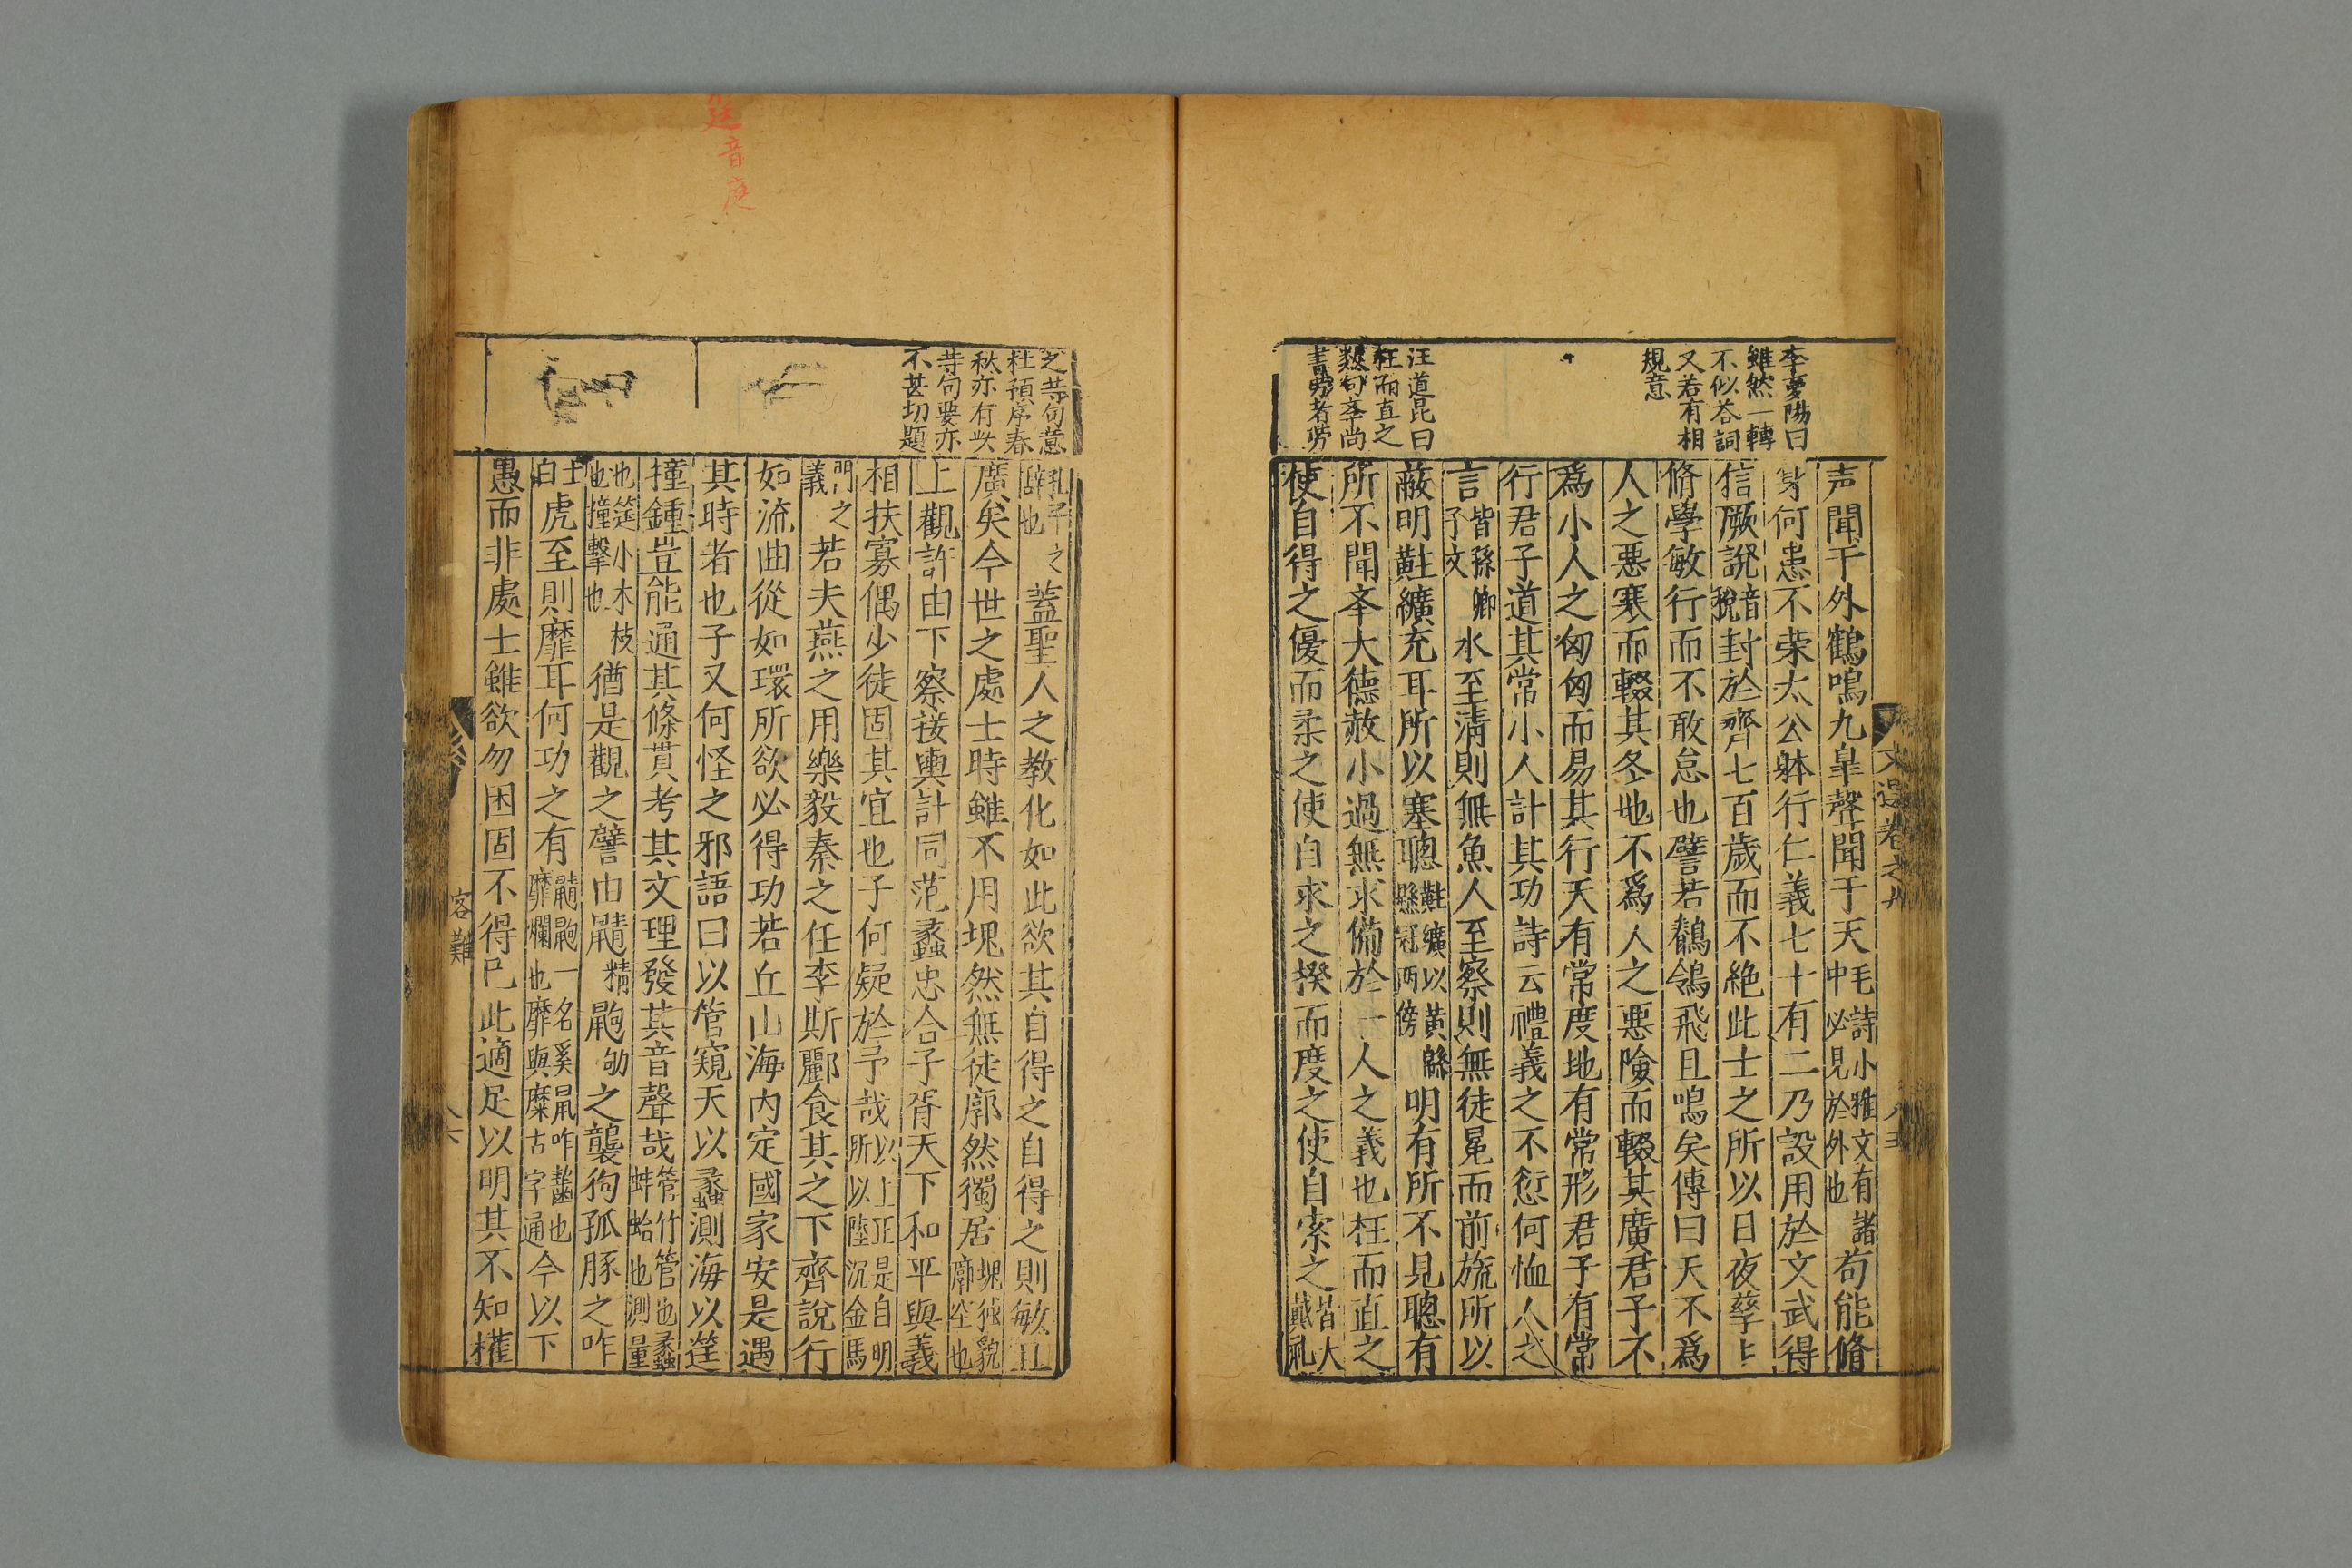 李夢陽曰
雖然一轉
不似答詞
又若有相
規意
汪道昆曰
枉而直之
數句奉尚
書勞者勞
声聞于外鶴鳴九皐聲聞于天毛詩小雅文有諸中必見於外也苟能脩
身何患不荣太公躰行仁義七十有二乃設用於文武得
信厥說音稅封於齊七百歲而不絶此士之所以日夜孳〻
脩學敏行而不敢怠也譬若鶺鴒飛且鳴矣傳曰天不爲
人之惡寒而輟其冬地不爲人之惡險而輟其廣君子不
爲小人之匈匈而易其行天有常度地有常形君子有常
行君子道其常小人計其功詩云禮義之不愆何恤人之
言皆孫卿子文水至清則無魚人至察則無徒冕而前旒所以
蔽明黈纊充耳所以塞聰黈纊以黃緜懸冠兩傍明有所不見聰有
所不聞夲大德赦小過無求備於一人之義也枉而直之
使自得之優而柔之使自求之揆而度之使自索之皆大戴礼
文選卷之
八五
之䓁句意
杜預序春
秋亦有此
䓁句要亦
不甚切題
孔子之辞也蓋聖人之教化如此欲其自得之自得之則敏且
廣矣今世之處士時雖不用塊然無徒廓然獨居塊獨貌廓空也
上觀許由下察接輿計同范蠡忠合子胥天下和平與義
相扶寡偶少徒固其宜也子何疑於予哉以上正是自明所以陸沉金馬
門之義若夫燕之用樂毅秦之任李斯酈食其之下齊說行
如流曲從如環所欲必得功若丘山海内定國家安是遇
其時者也子又何怪之邪語曰以管窺天以蠡測海以筳
撞鍾豈能通其條貫考其文理發其音聲哉管竹管也蠡蚌蛤也測量
也筳小木枝也撞擊也猶是觀之譬由鼱精鼩劬之襲狗孤豚之咋
士白虎至則靡耳何功之有鼱鼩一名奚鼠咋齧也靡爛也靡與糜古字通今以下
愚而非處士雖欲勿困固不得巳此適足以明其不知權
客難
八六
筳音庭